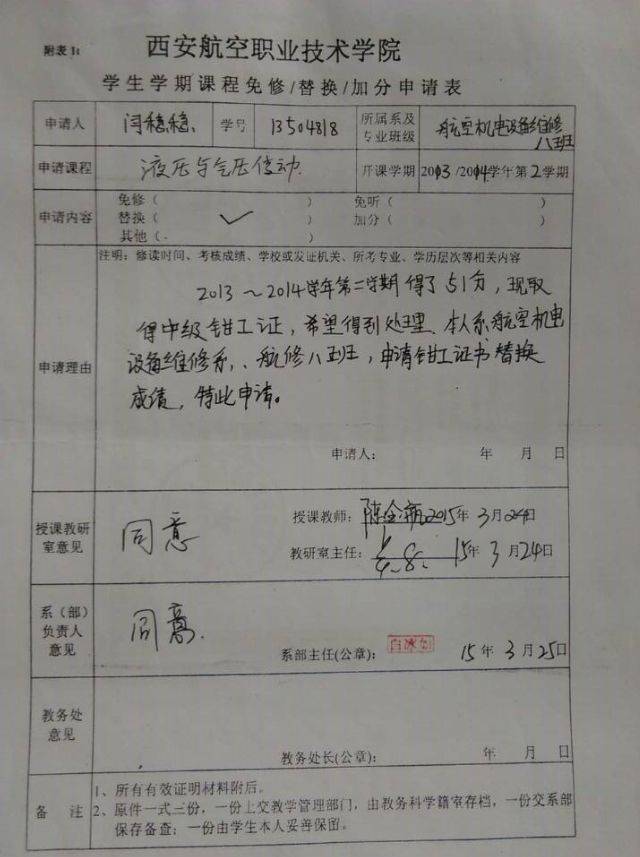 附表1:
西安航空职业技术学院
学生学期课程免修/替换/加分申请表
申请人 闫稳稳 学号 13504818 所属系及专业班级 航空机电设备维修八五班
申请课程 液压与气压传动 开课学期 2013/2014学年第2学期
申请内容
免修（ ） 免听（ ）
替换（ ✓ ） 加分（ ）
其他（ ）
申请理由
注明：修读时间、考核成绩、学校或发证机关、所考专业、学历层次等相关内容
2013～2014学年第二学期得了51分，现取
得中级钳工证，希望得到处理。本人系航空机电
设备维修系、航修八五班，申请钳工证书替换
成绩，特此申请。
申请人： 年 月 日
授课教研室意见
同意
授课教师： 2015年3月24日
教研室主任： 15年3月24日
系（部）负责人意见
同意
系部主任(公章)： 15年3月25日
教务处意见
教务处长(公章)： 年 月 日
备 注
1、所有有效证明材料附后。
2、原件一式三份，一份上交教学管理部门，由教务科学籍室存档，一份交系部
保存备查；一份由学生本人妥善保留。